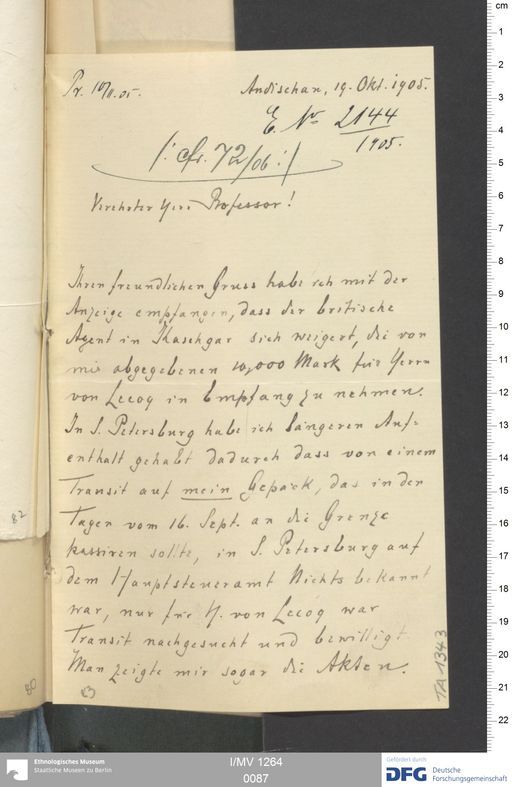 Pr. 10/11. 05.
Andischan, 19. Okt. 1905.
E. № 2144
1905.
/: cfr. 72/06 :/
Verehrter Herr Professor!
Ihren freundlichen Gruss habe ich mit der
Anzeige empfangen, dass der britische
Agent in Kaschgar sich weigert, die von
mir abgegebenen 10,000 Mark für Herrn
von Lecoq in Empfang zu nehmen.
In S. Petersburg habe ich längeren Auf-
enthalt gehabt dadurch dass von einem
Transit auf mein Gepäck, das in den
Tagen vom 16. Sept. an die Grenze
passiren sollte, in S. Petersburg auf
dem Hauptsteueramt Nichts bekannt
war, nur für H. von Lecoq war
Transit nachgesucht und bewilligt.
Man zeigte mir sogar die Akten.
82
80
83
TA 1343
cm
1
2
3
4
5
6
7
8
9
10
11
12
13
14
15
16
17
18
19
20
21
22
Ethnologisches Museum
Staatliche Museen zu Berlin
I/MV 1264
0087
Gefördert durch
DFG Deutsche
Forschungsgemeinschaft